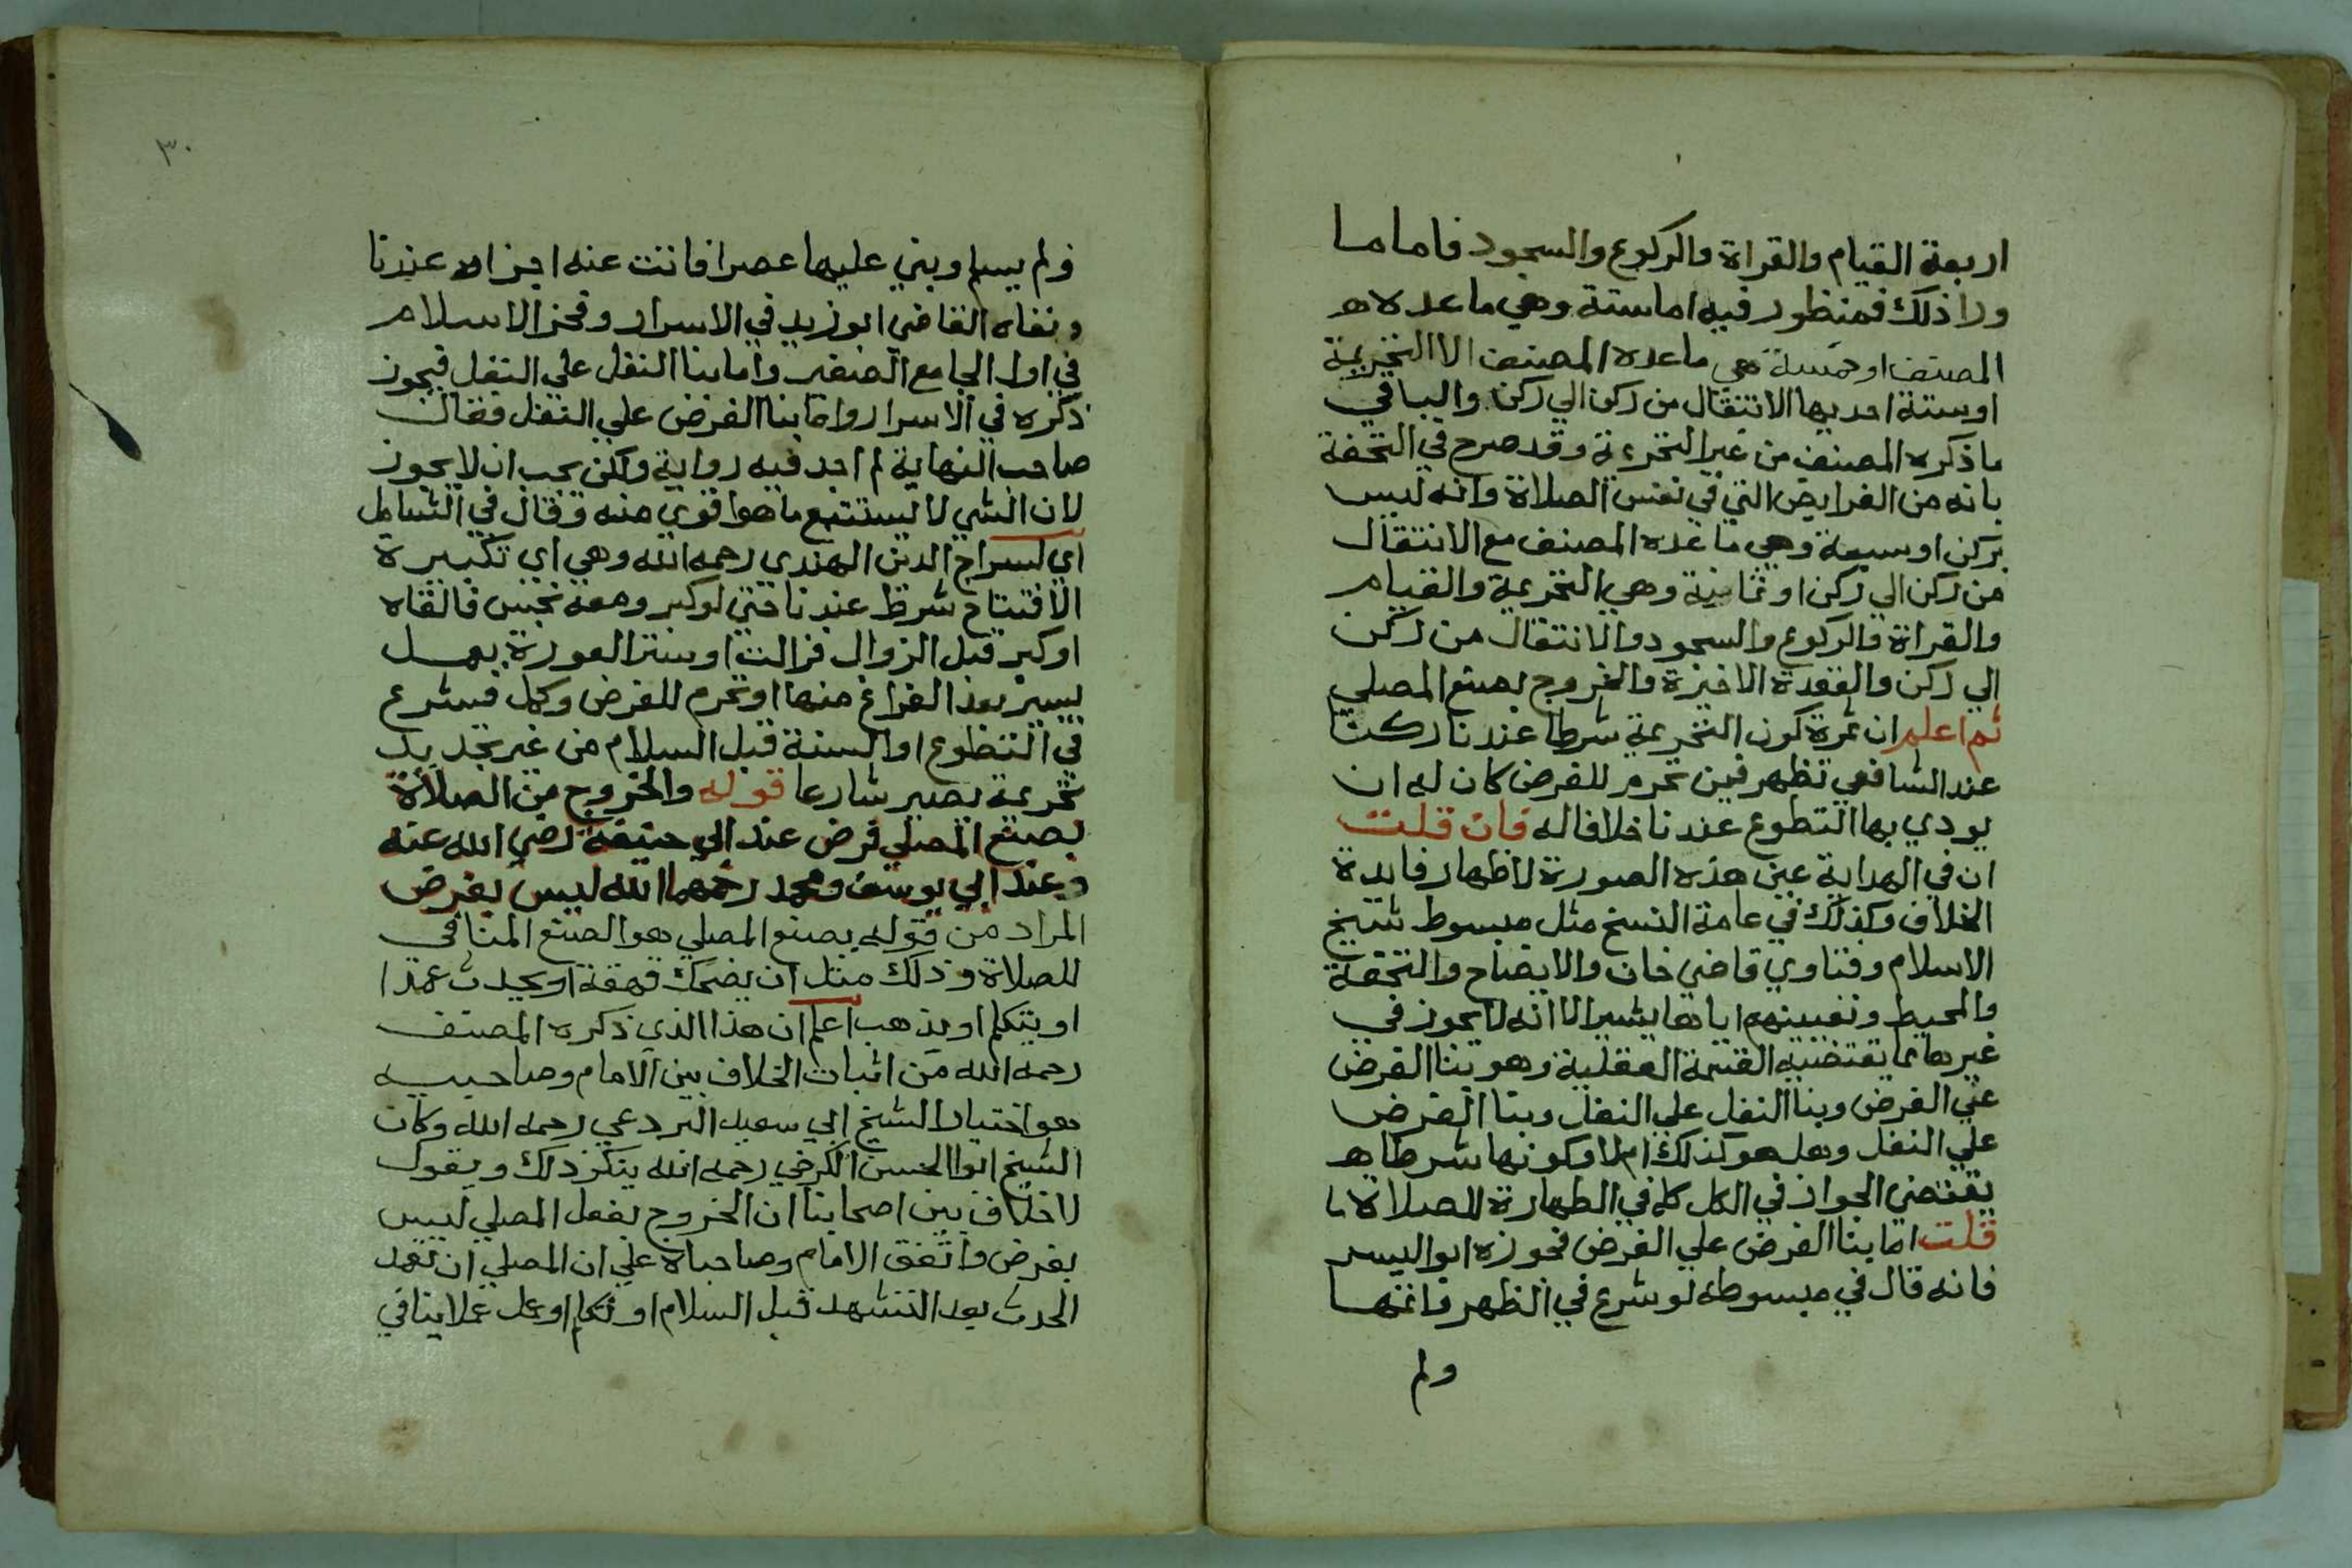 اربعة القيام والقراة والركوع والسجود فاما ما
ورا ذلك فمنظور فيه اما ستة وهي ما عده
المصنف او خمسة هي ما عده المصنف الا التحريمة
او ستة احديها الانتقال من ركن الي ركن والباقي
ما ذكره المصنف من غير التحريمة وقد صرح في التحفة
بانه من الفرايض التي في نفس الصلاة وانه ليس
بركن او سبعة وهي ما عده المصنف مع الانتقال
من ركن الي ركن او ثمانية وهي التحريمة والقيام
والقراة والركوع والسجود والانتقال من ركن
الي ركن والقعدة الاخيرة والخروج بصنع المصلي
ثم اعلم ان ثمرة كون التحريمة شرطا عندنا ركنا
عند الشافعي تظهر فيمن تحرم للفرض كان له ان
يودي بها التطوع عندنا خلافا له فان قلت
ان في الهداية عين هذه الصورة لاظهار فايدة
الخلاف وكذلك في عامة النسخ مثل مبسوط شيخ
الاسلام وفتاوي قاضي خان والايضاح والتحفة
والمحيط وتعيينهم اياها يشير الا انه لا يجوز في
غيرها مما يقتضيه القسمة العقلية وهو بنا الفرض
علي الفرض وبنا النفل علي النفل وبنا الفرض
علي النفل وهل هو كذلك ام لا وكونها شرطا
يقتضي الجواز في الكل كما في الطهارة للصلاة
قلت اما بنا الفرض علي الفرض فجوزه ابو اليسر
فانه قال في مبسوطه لو شرع في الظهر فاتمها
ولم
٣٠
ولم يسلم وبني عليها عصرا فاتت عنه اجزاه عندنا
ونفاه القاضي ابو زيد في الاسرار وفخر الاسلام
في اول الجامع الصغير واما بنا النفل علي النفل فيجوز
ذكره في الاسرار واما بنا الفرض علي النفل فقال
صاحب النهاية لم اجد فيه رواية ولكن يجب ان لا يجوز
لان الشي لا يستتبع ما هو اقوي منه وقال في الشامل
اي لسراج الدين الهندي رحمه الله وهي اي تكبيرة
الافتتاح شرط عندنا حتي لو كبر ومعه نجس فالقاه
او كبر قبل الزوال فزالت او ستر العورة بعمل
يسير بعد الفراغ منها او تحرم للفرض وكمل فشرع
في التطوع او السنة قبل السلام من غير تجديد
تحريمة يصير شارعا قوله والخروج من الصلاة
بصنع المصلي فرض عند ابي حنيفة رضي الله عنه
وعند ابي يوسف ومحمد رحمهما الله ليس بفرض
المراد من قوله بصنع المصلي هو الصنع المنافي
للصلاة وذلك مثل ان يضحك قهقة او يحدث عمدا
او يتكلم او يذهب اعلم ان هذا الذي ذكره المصنف
رحمه الله من اثبات الخلاف بين الامام وصاحبيه
هو اختيار الشيخ ابي سعيد البردعي رحمه الله وكان
الشيخ ابو الحسن الكرخي رحمه الله ينكر ذلك ويقول
لا خلاف بين اصحابنا ان الخروج بفعل المصلي ليس
بفرض واتفق الامام وصاحباه علي ان المصلي ان تعمد
الحدث بعد التشهد قبل السلام او تكلم او عمل عملا ينافي